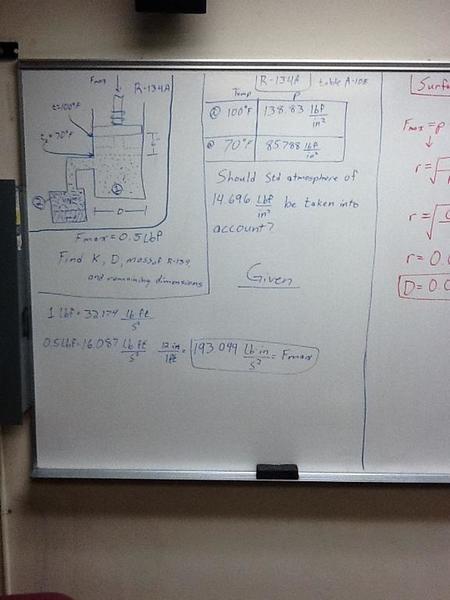 Fmax
R-134A
t=100°F
t₀=70°F
D
Fmax=0.5 lbf
Find K, D, mass of R-134
and remaining dimensions
R-134A table A-10E
Temp P
@ 100°F 138.83 lbf/in²
@ 70°F 85.788 lbf/in²
Should Std atmosphere of
14.696 lbf/in² be taken into
account?
Given
1 lbf=32.174 lb ft/s²
0.5 lbf=16.087 lb ft/s² 12 in/1 ft = 193.044 lb in/s² = Fmax
Surf
Fmax=P
r=√
r=√
r=0.0
D=0.0